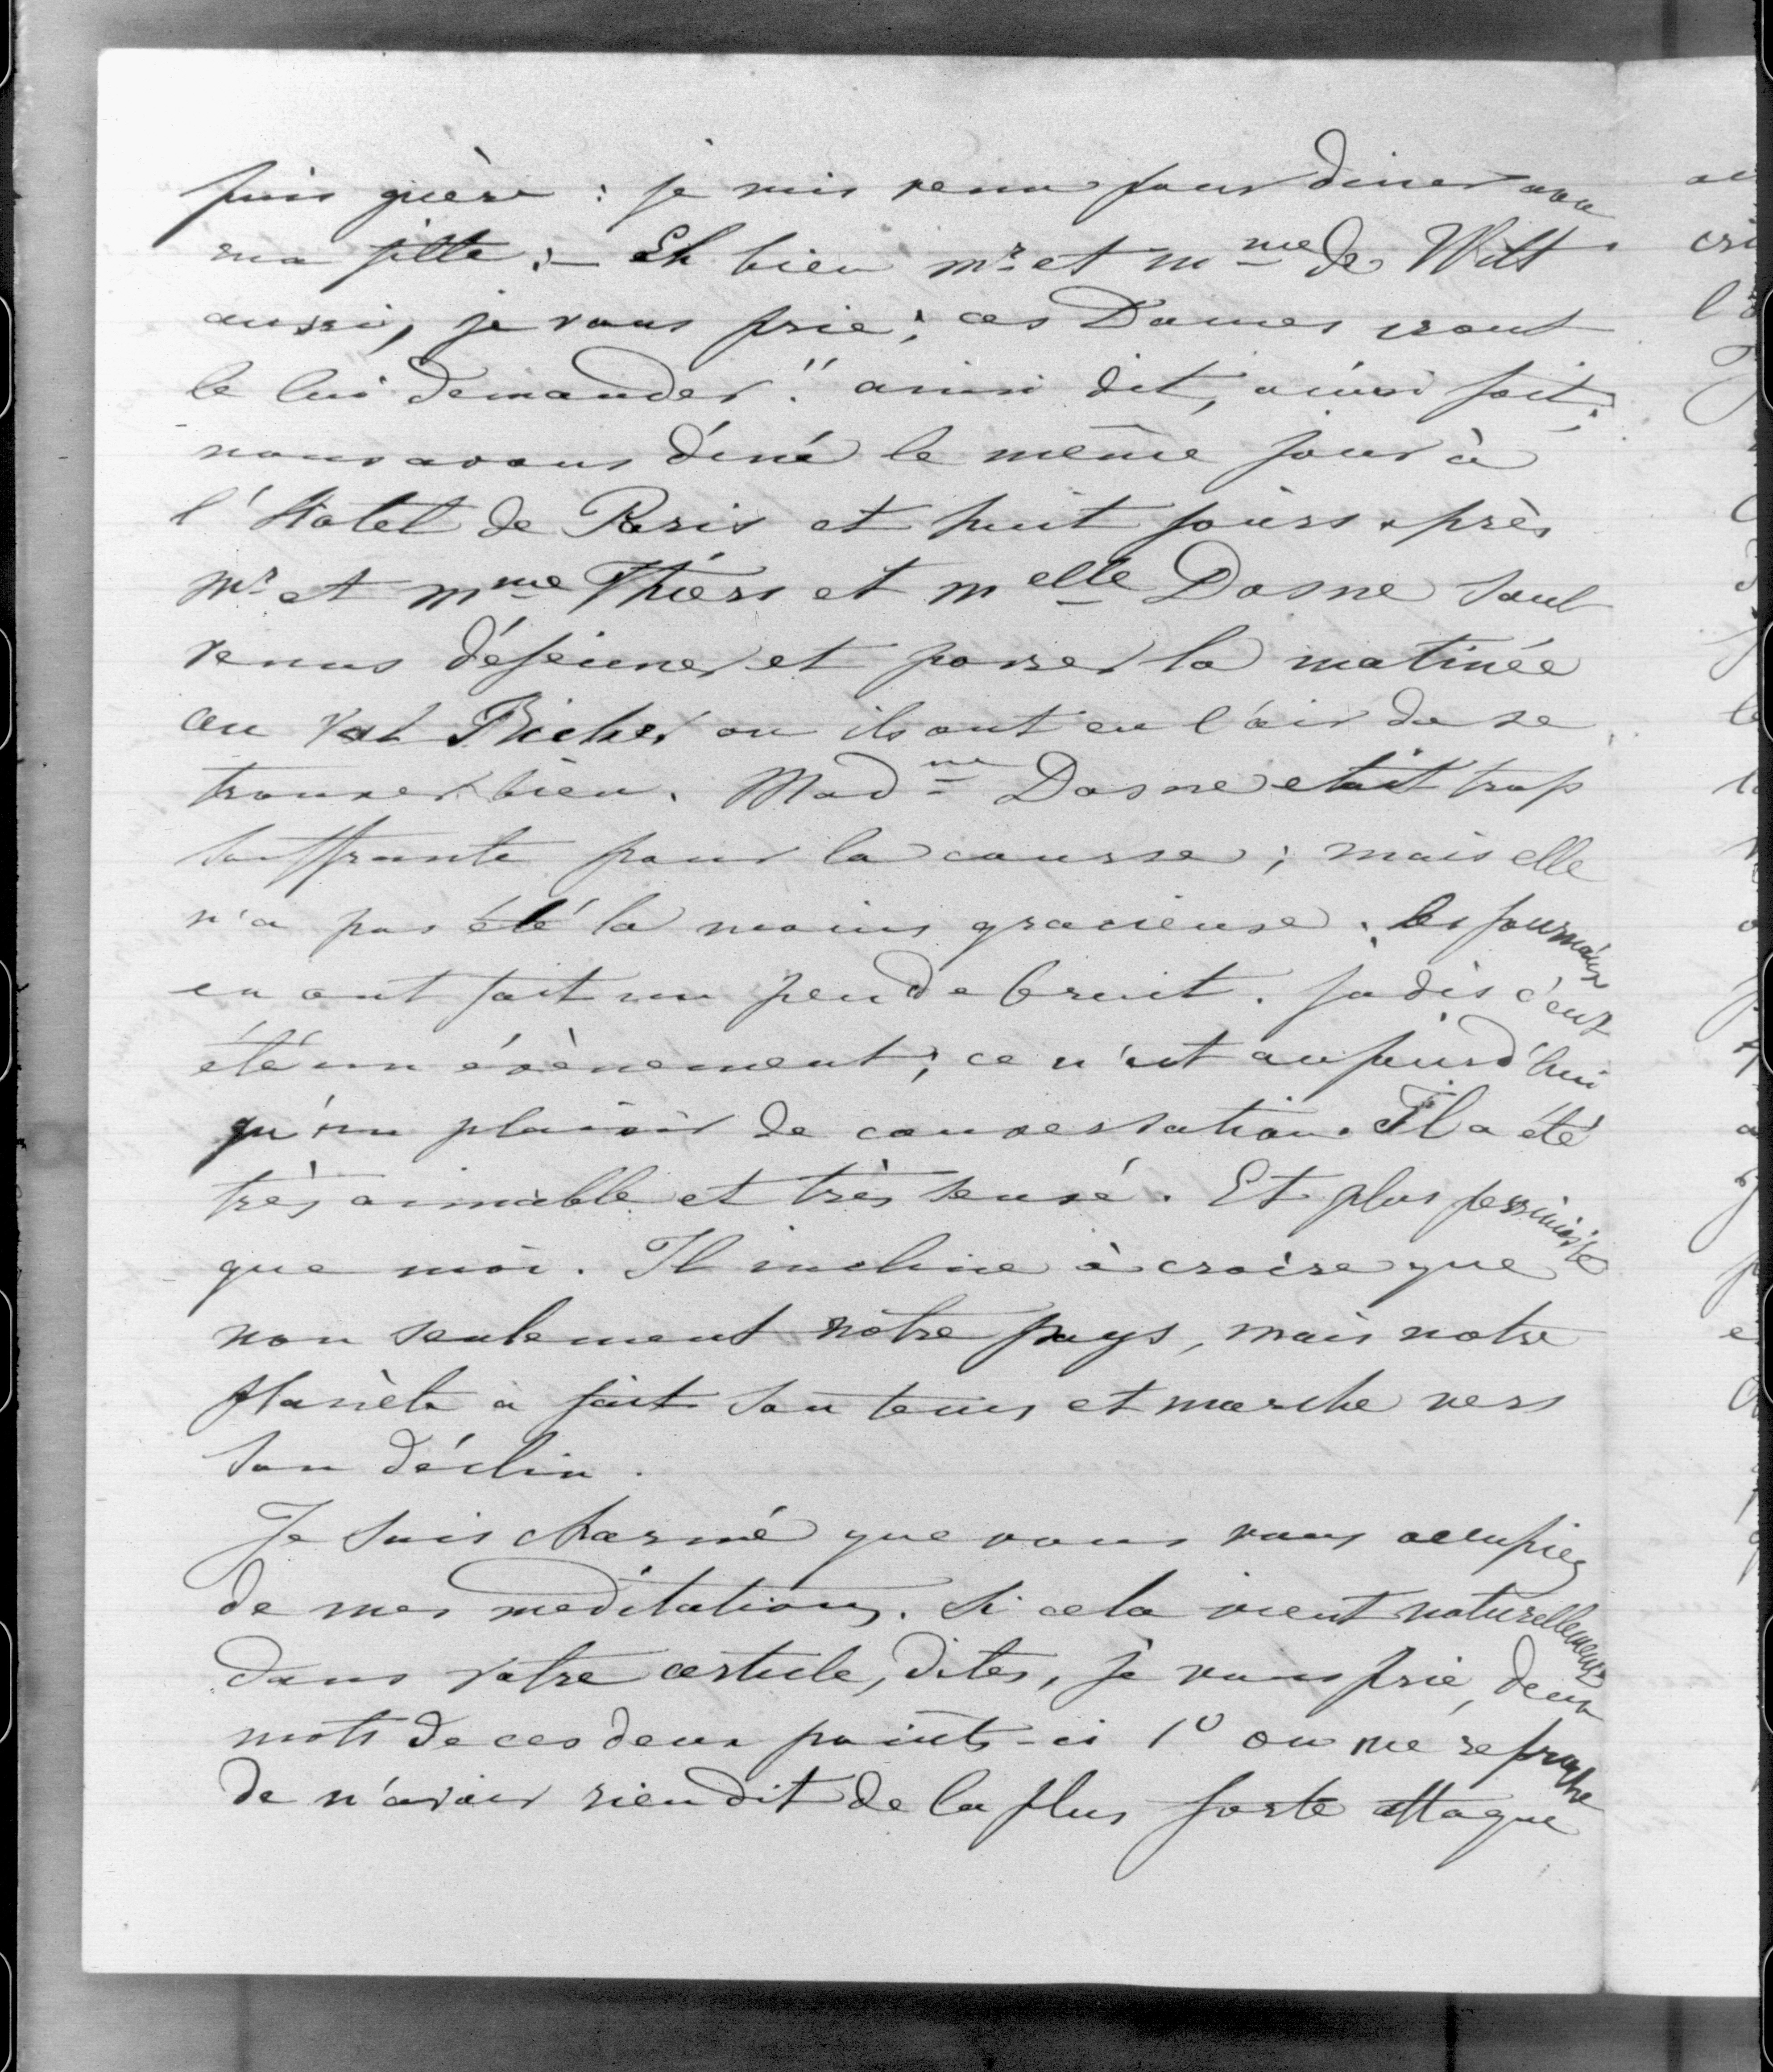 puis guère : je suis venu pour diner avec
ma fille :– Eh bien mr et mme de Witt
aussi, je vous prie ; ces Dames iront
le lui demander." ainsi dit, ainsi fait ;
nous avons diné le même jour à
l'Hotel de Paris et huit jours après
Mr et Mme Thiers et Melle Dosne sont
venus déjeuner et passer la matinée
au Val Richer ou ils ont eu l'air de se
trouver bien. Madme Dosne etait trop
souffrante pour la course ; mais elle
n'a pas été la moins gracieuse. les journaux
en ont fait un peu de bruit. Jadis c'eut
été un évènement ; ce n'est aujourd'hui
qu'un plaisir de conversation. Il a été
très aimable et très sensé. Et plus pessimiste
que moi. Il incline à croire que
non seulement notre pays, mais notre
planète a fait son tems et marche vers
son déclin.
Je suis charmé que vous vous occupiez
de mes meditations. Si cela vient naturellement
dans votre article, dites, je vous prie, deux
mots de ces deux points-ci 1o on me reproche
de n'avoir rien dit de la plus forte attaque